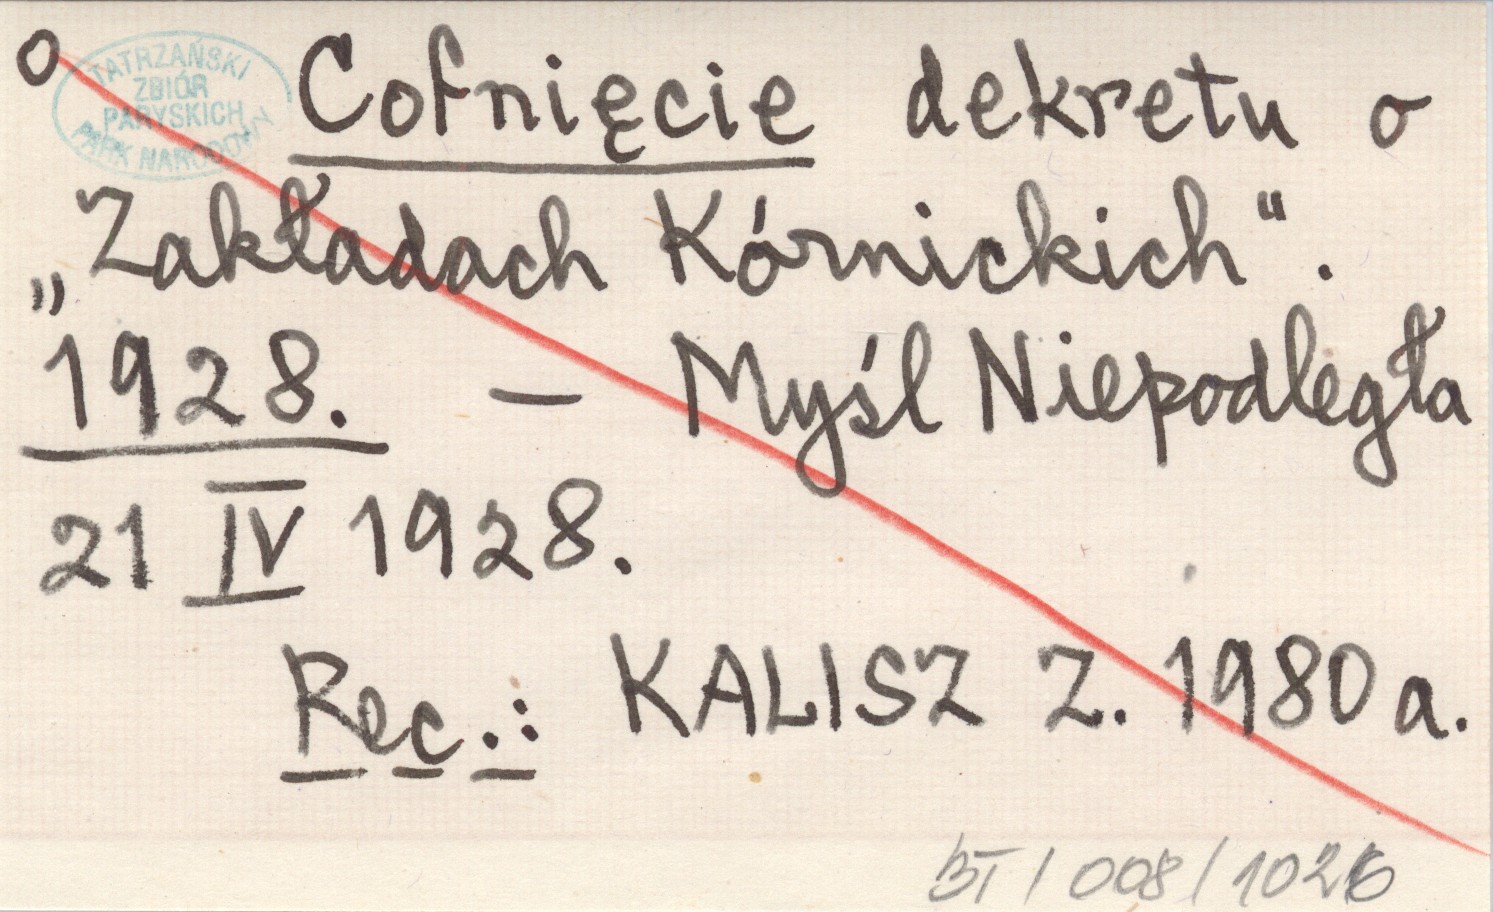 o
TATRZAŃSKI
ZBIÓR
PARYSKICH
PARK NARODOWY
Cofnięcie dekretu o
„Zakładach Kórnickich".
1928. — Myśl Niepodległa
21 IV 1928.
Rec.: KALISZ Z. 1980 a.
BT / 008 / 1026